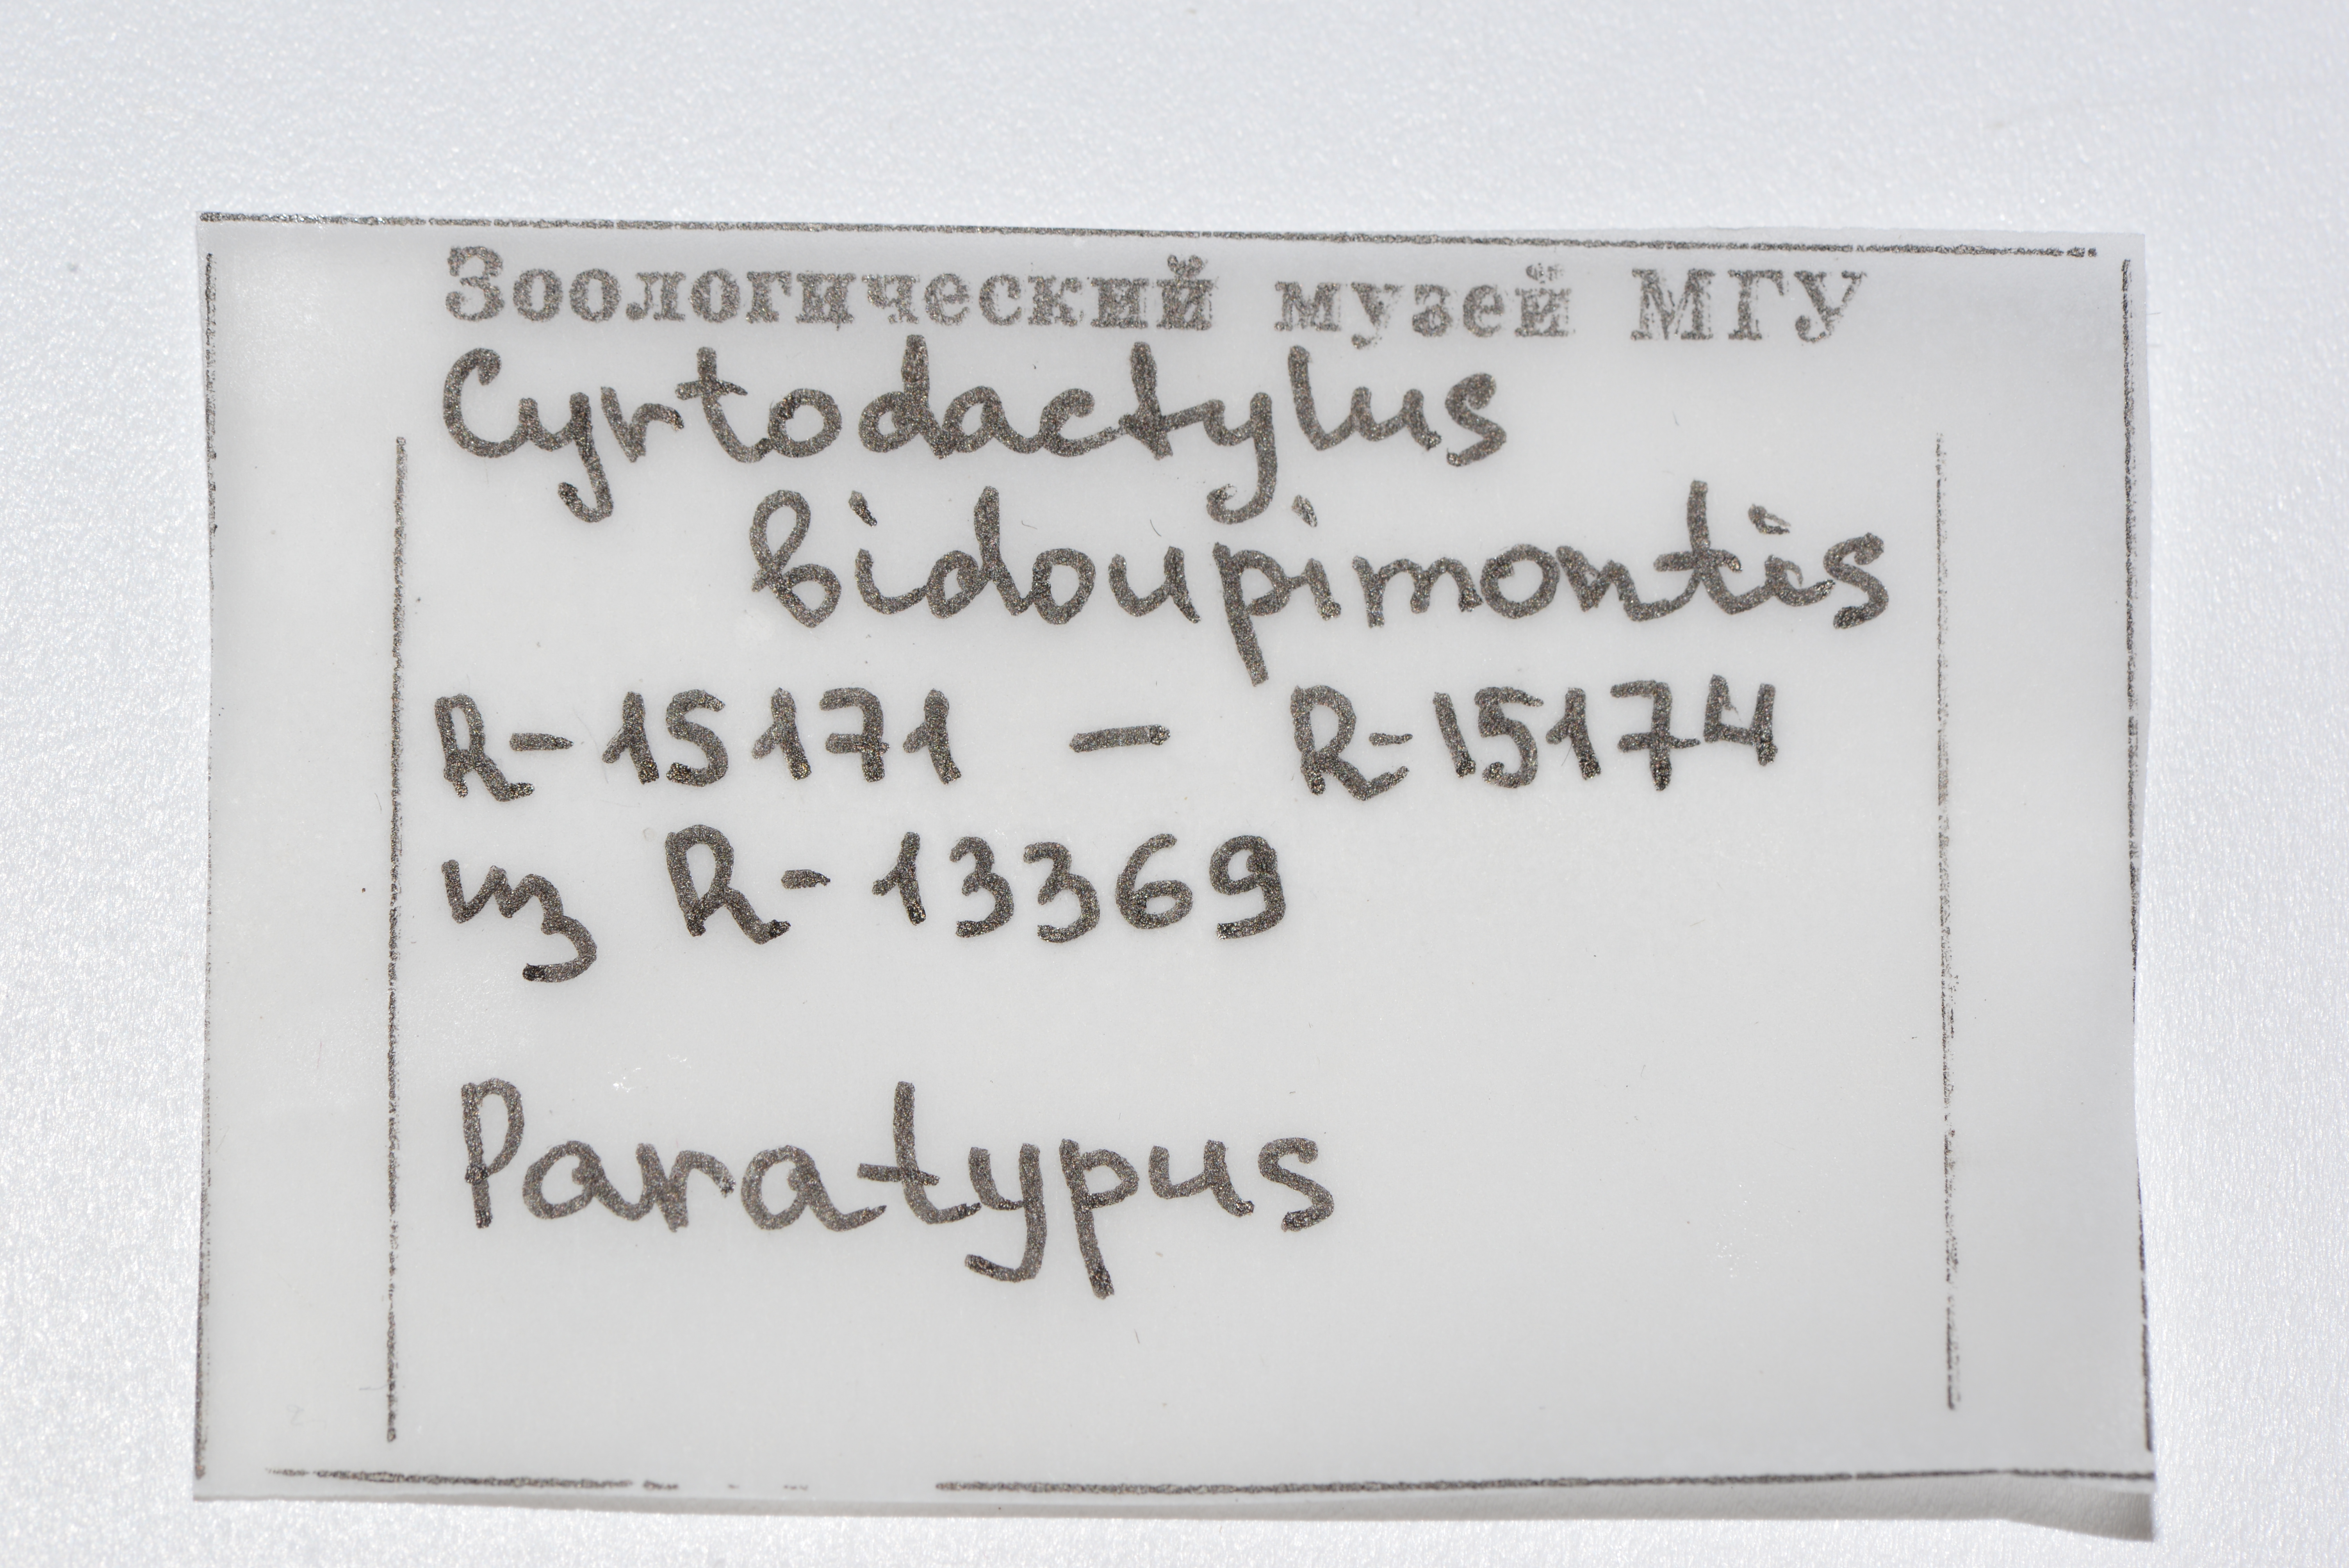 Зоологический музей МГУ
Cyrtodactylus
bidoupimontis
R-15171 - R-15174
из R-13369
Paratypus